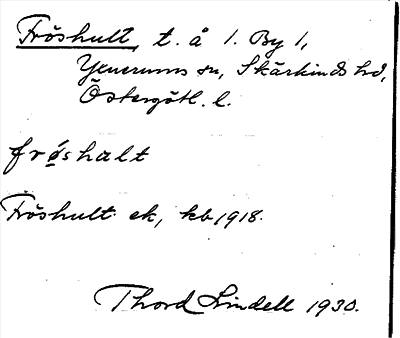 Fröshult, t. å 1. By 1,
Yxnerums sn, Skärkinds hd,
Östergötl. l.
frøshalt
Fröshult ek, kb 1918.
Thord Lindell 1930.